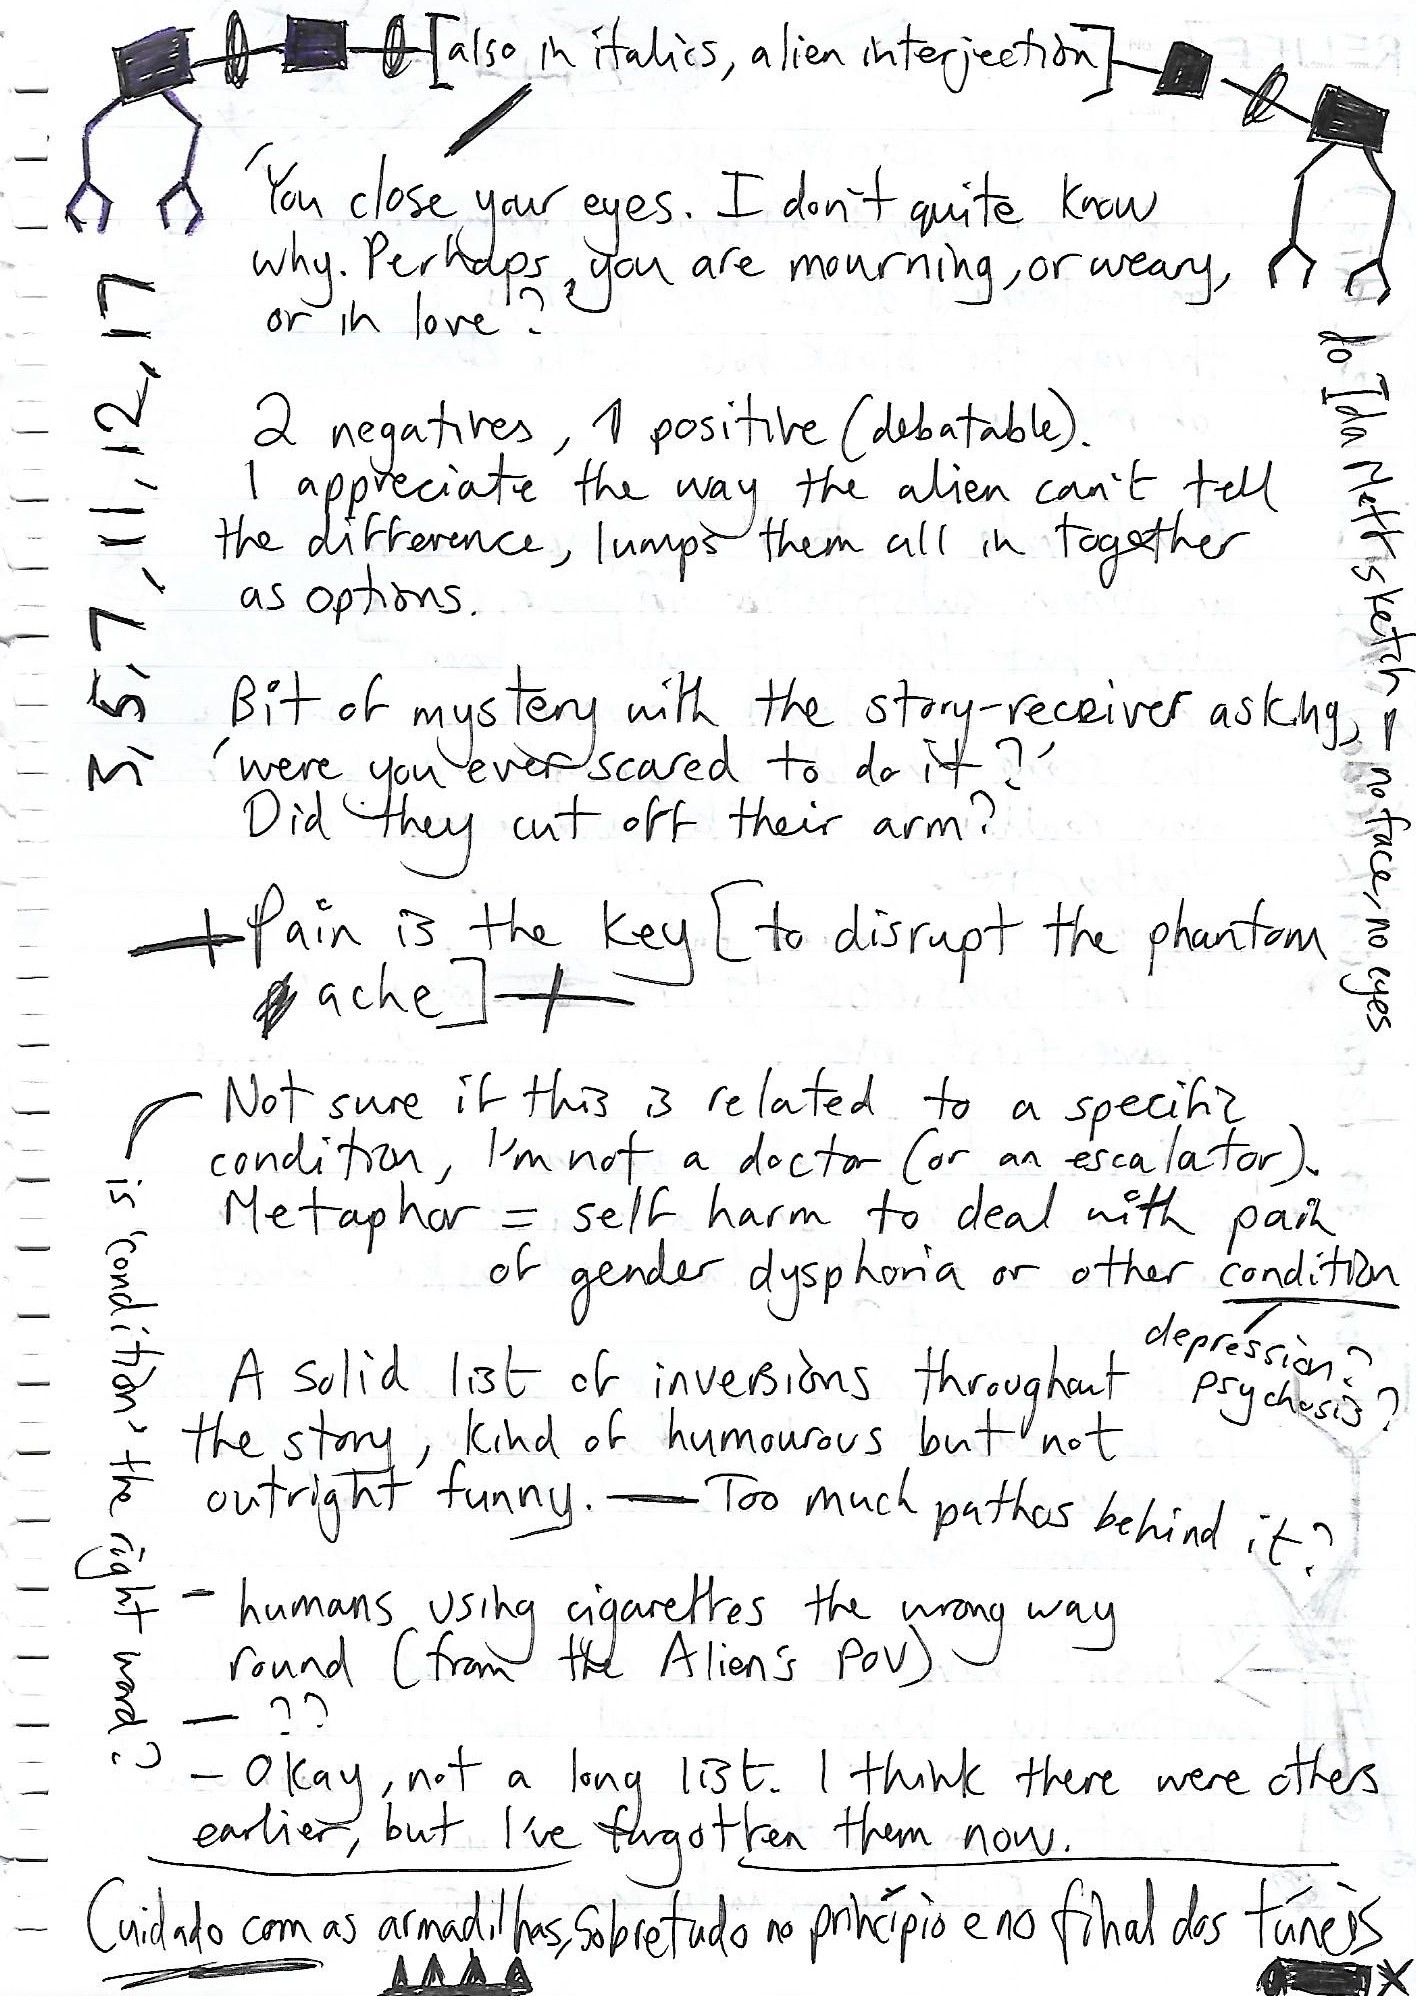 [also in italics, alien interjection]
'You close your eyes. I don't quite know
why. Perhaps, you are mourning, or weary,
or in love?'
2 negatives, 1 positive (debatable).
I appreciate the way the alien can't tell
the difference, lumps them all in together
as options.
Bit of mystery with the story-receiver asking,
'were you ever scared to do it?'
Did they cut off their arm?
Pain is the key [to disrupt the phantom
ache]
Not sure if this is related to a specific
condition, I'm not a doctor (or an escalator).
Metaphor = self harm to deal with pain
of gender dysphoria or other condition
depression?
psychosis?
A solid list of inversions throughout
the story, kind of humourous but not
outright funny. — Too much pathos behind it?
- humans using cigarettes the wrong way
round (from the Alien's POV)
- ??
- Okay, not a long list. I think there were others
earlier, but I've forgotten them now.
Cuidado com as armadilhas, sobretudo no princípio e no final dos túneis
3, 5, 7, 11, 12, 17
is 'condition' the right word?
do Ida Mett sketch - no face, no eyes